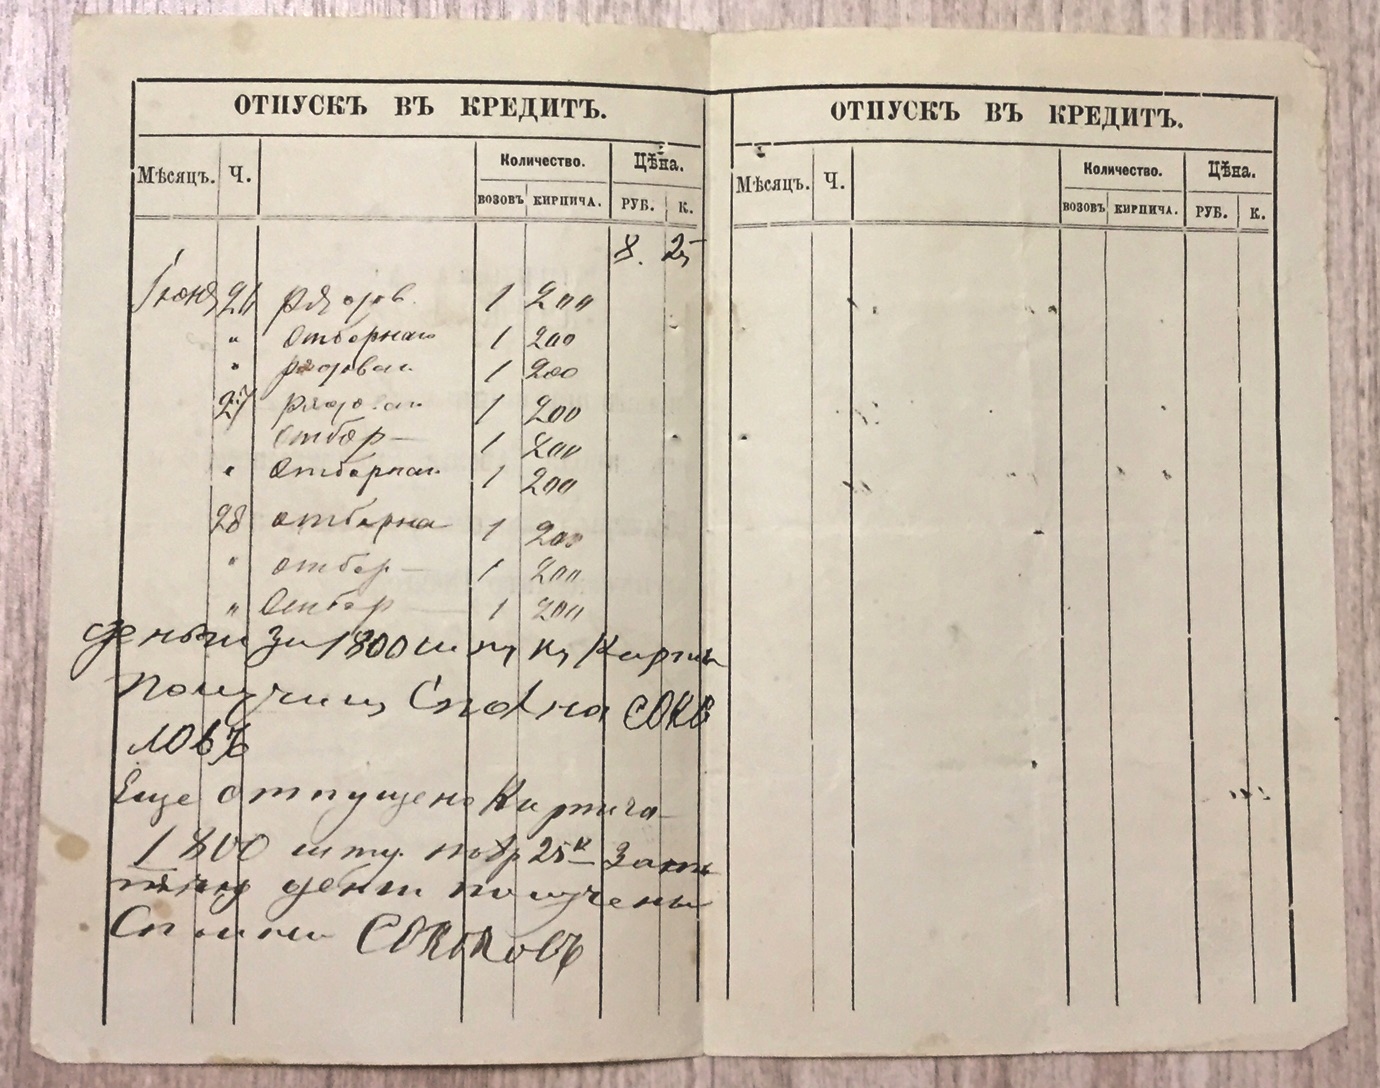 ОТПУСКЪ ВЪ КРЕДИТЪ.
Мѣсяцъ. Ч. Количество. Цѣна.
ВОЗОВЪ КИРПИЧА. РУБ. К.
8. 25
Июня 26 рядов. 1 200
" Отборная 1 200
" рядовая 1 200
27 рядовая 1 200
Отбор— 1 200
" Отборная 1 200
28 отборна 1 200
" отбор— 1 200
" Отбор 1 200
деньги За 1800 штукъ Кирпи
Получилъ Сполна СОКО
ЛОВЪ
Еще отпущено Кирпича
1800 шту. по 8р 25к За
деньги получены
Сполна СОКОЛОВЪ
ОТПУСКЪ ВЪ КРЕДИТЪ.
Мѣсяцъ. Ч. Количество. Цѣна.
ВОЗОВЪ КИРПИЧА. РУБ. К.